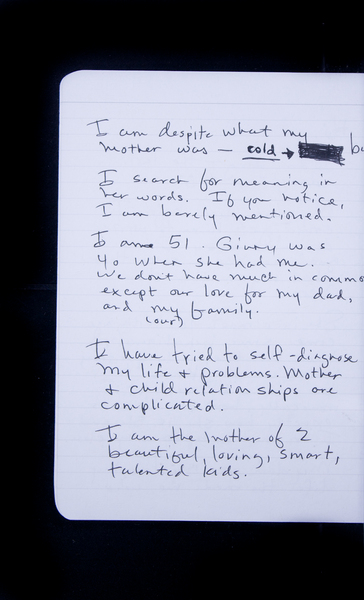 I am despite what my
mother was — cold → b
I search for meaning in
her words. If you notice,
I am barely mentioned.
I am 51. Ginny was
40 when she had me.
We don't have much in commo
except our love for my dad,
and my family.
(our)
I have tried to self-diagnose
my life & problems. Mother
& child relationships are
complicated.
I am the mother of 2
beautiful, loving, smart,
talented kids.